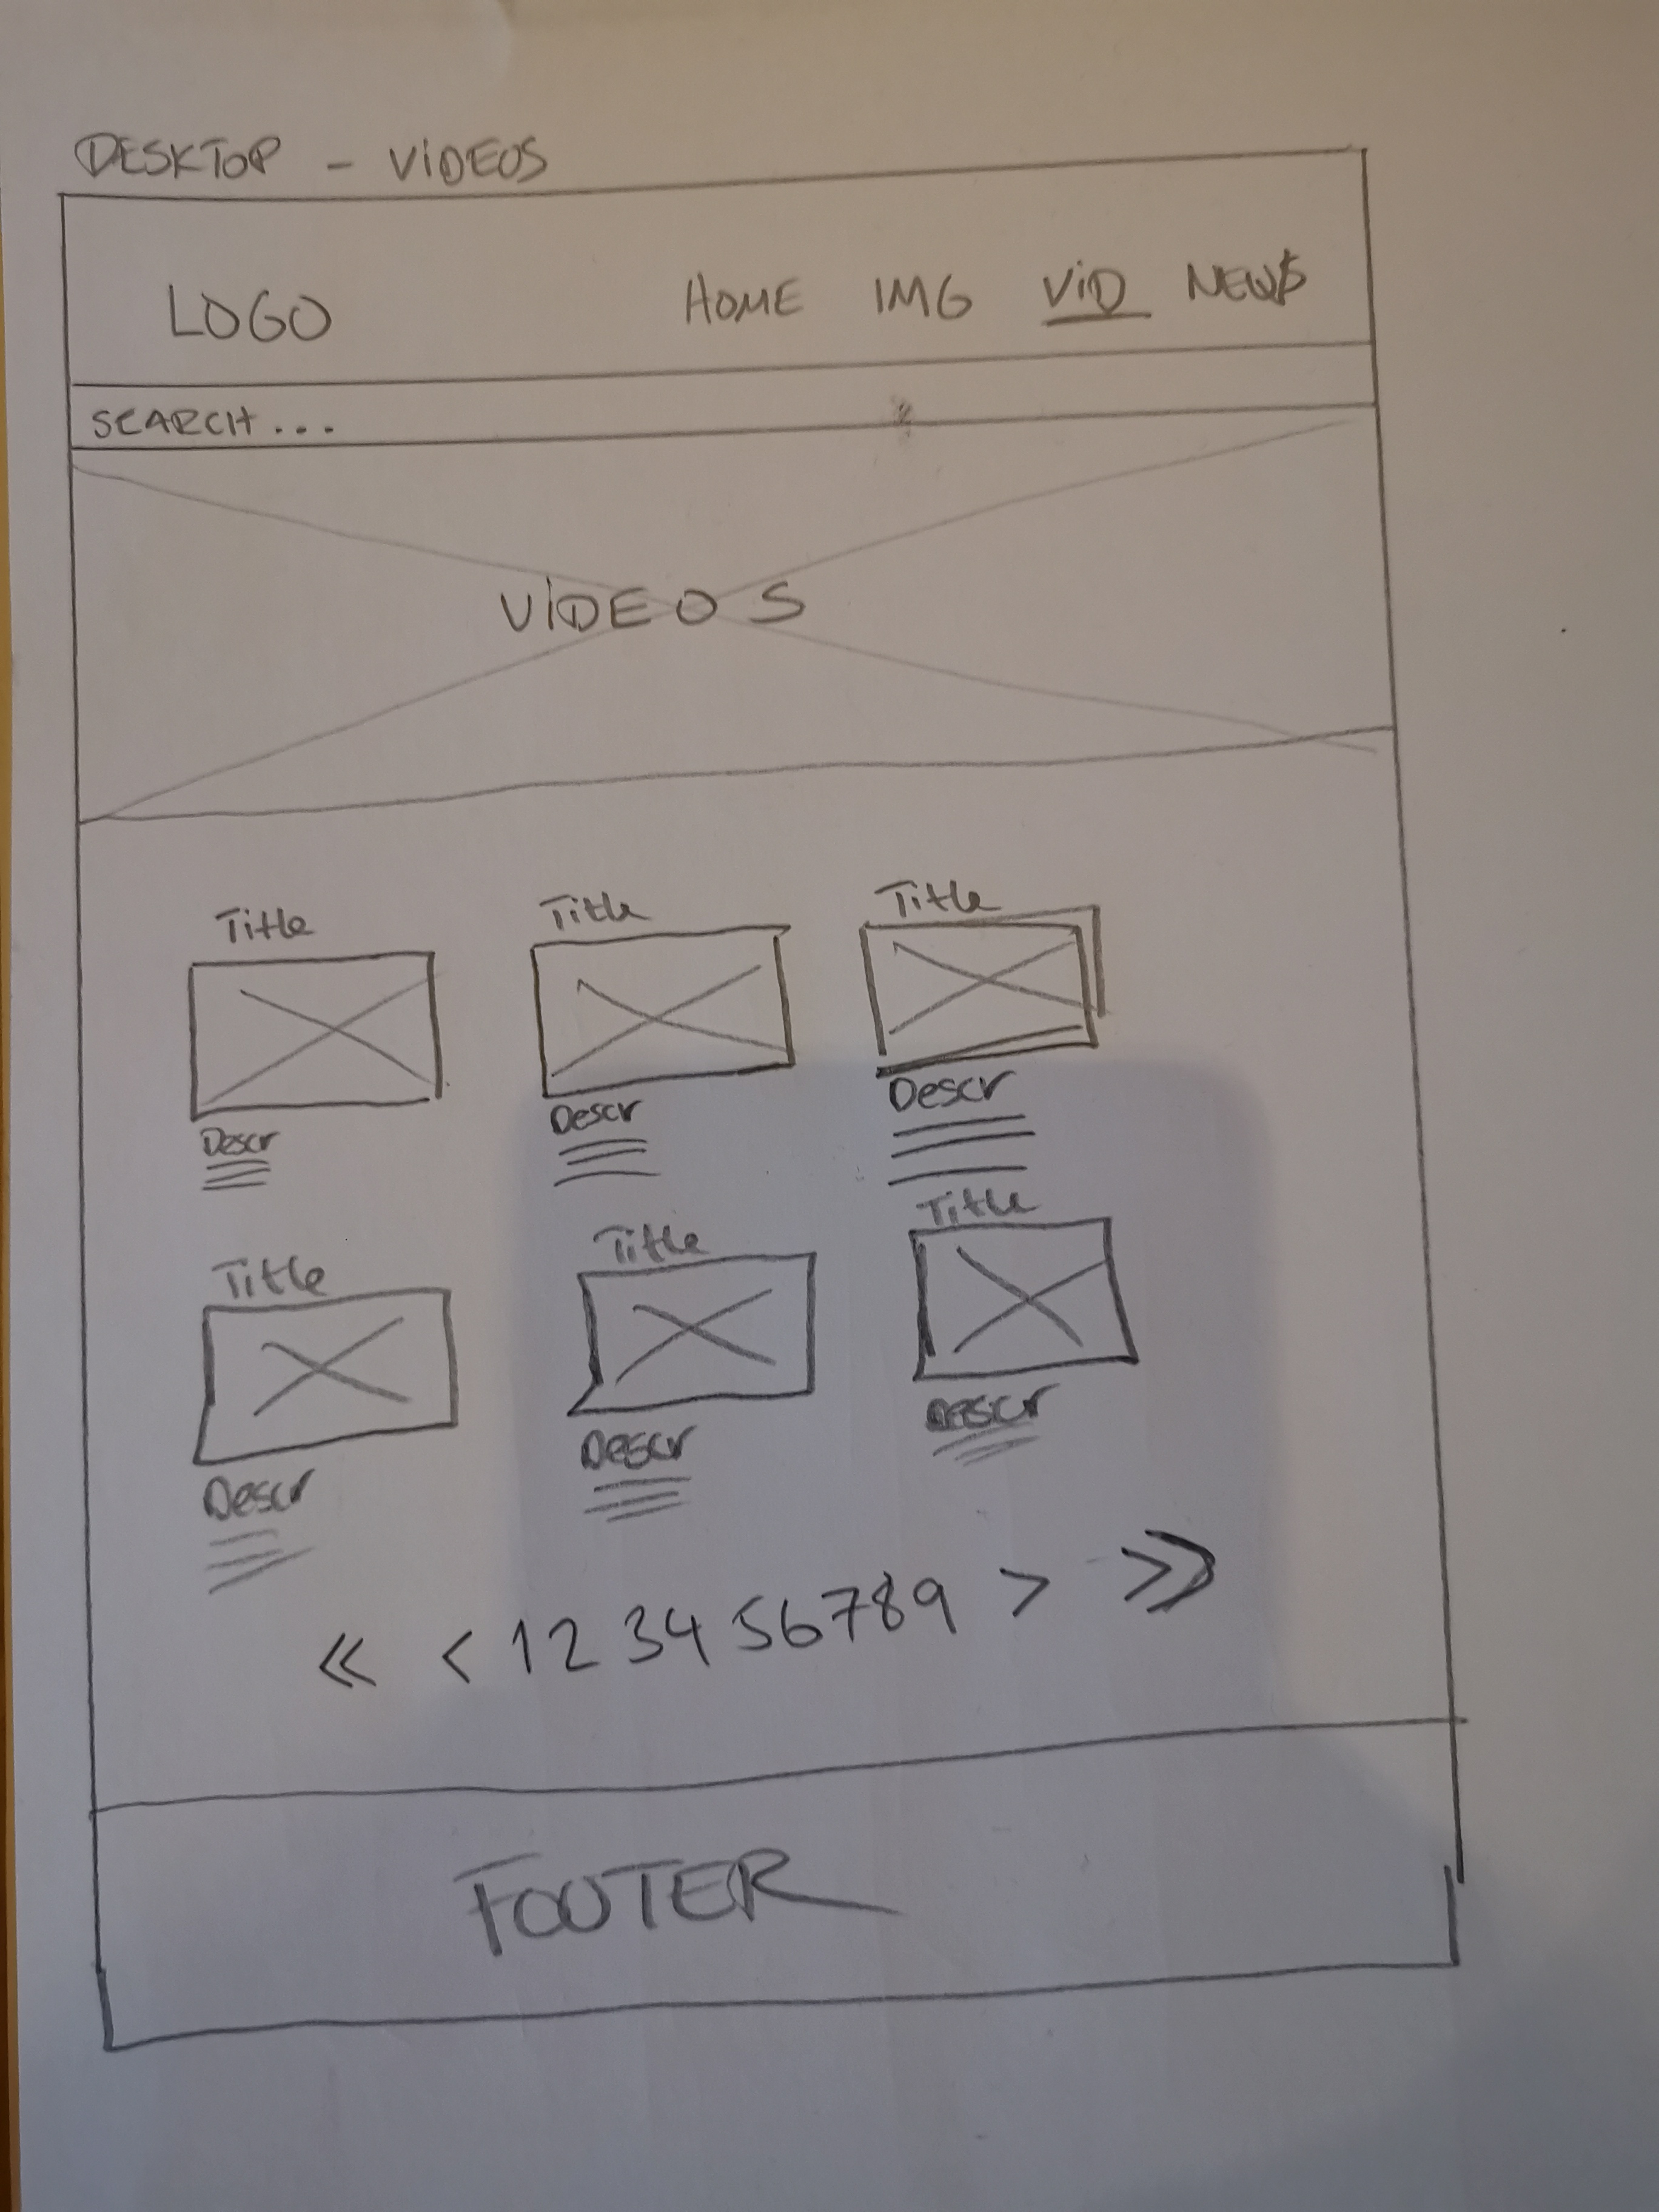 DESKTOP - VIDEOS
LOGO HOME IMG VID NEWS
SEARCH...
VIDEOS
Title Title Title
Descr Descr Descr
Title Title Title
Descr Descr Descr
<< < 1 2 3 4 5 6 7 8 9 > >>
FOOTER